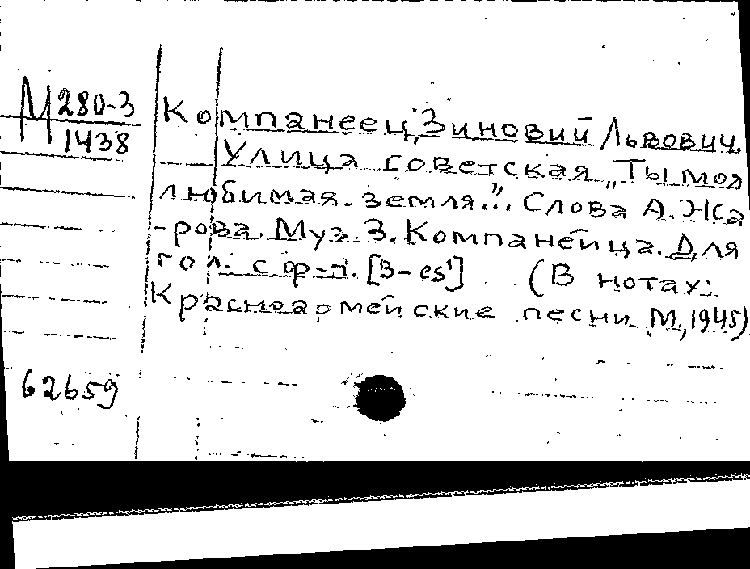 М 280-3
1438
Компанеец, Зиновий Львович.
Улица советская „Ты моя
любимая земля...". Слова А. Жа
-рова. Муз. З. Компанейца. Для
гол. с ф-п. [3-es²]  (В нотах:
Красноармейские песни. М, 1945)
62659